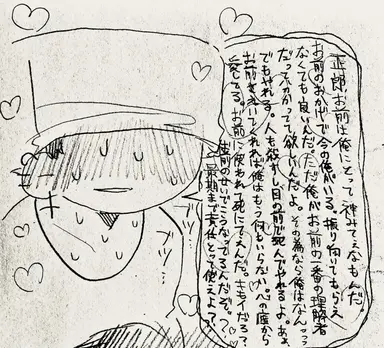 正郎、お前は俺にとって神みてぇなもんだ。
お前のおかげで今の俺がいる。振り向いてもらえ
なくても良いんだ。ただ俺がお前の一番の理解者
だって分かってて欲しんだよ。その為なら俺はなんだっ
でもやれる。人も殺すし目の前で死んでやれるよ。あぁ、
お前さえいてくれれば俺はもう何もいらない。心の底から
愛してる。お前に使われて死にてぇんだ。キモイだろ？
お前のせいでこうなってるんだぞ。？
最期まで責任とって使えよ？